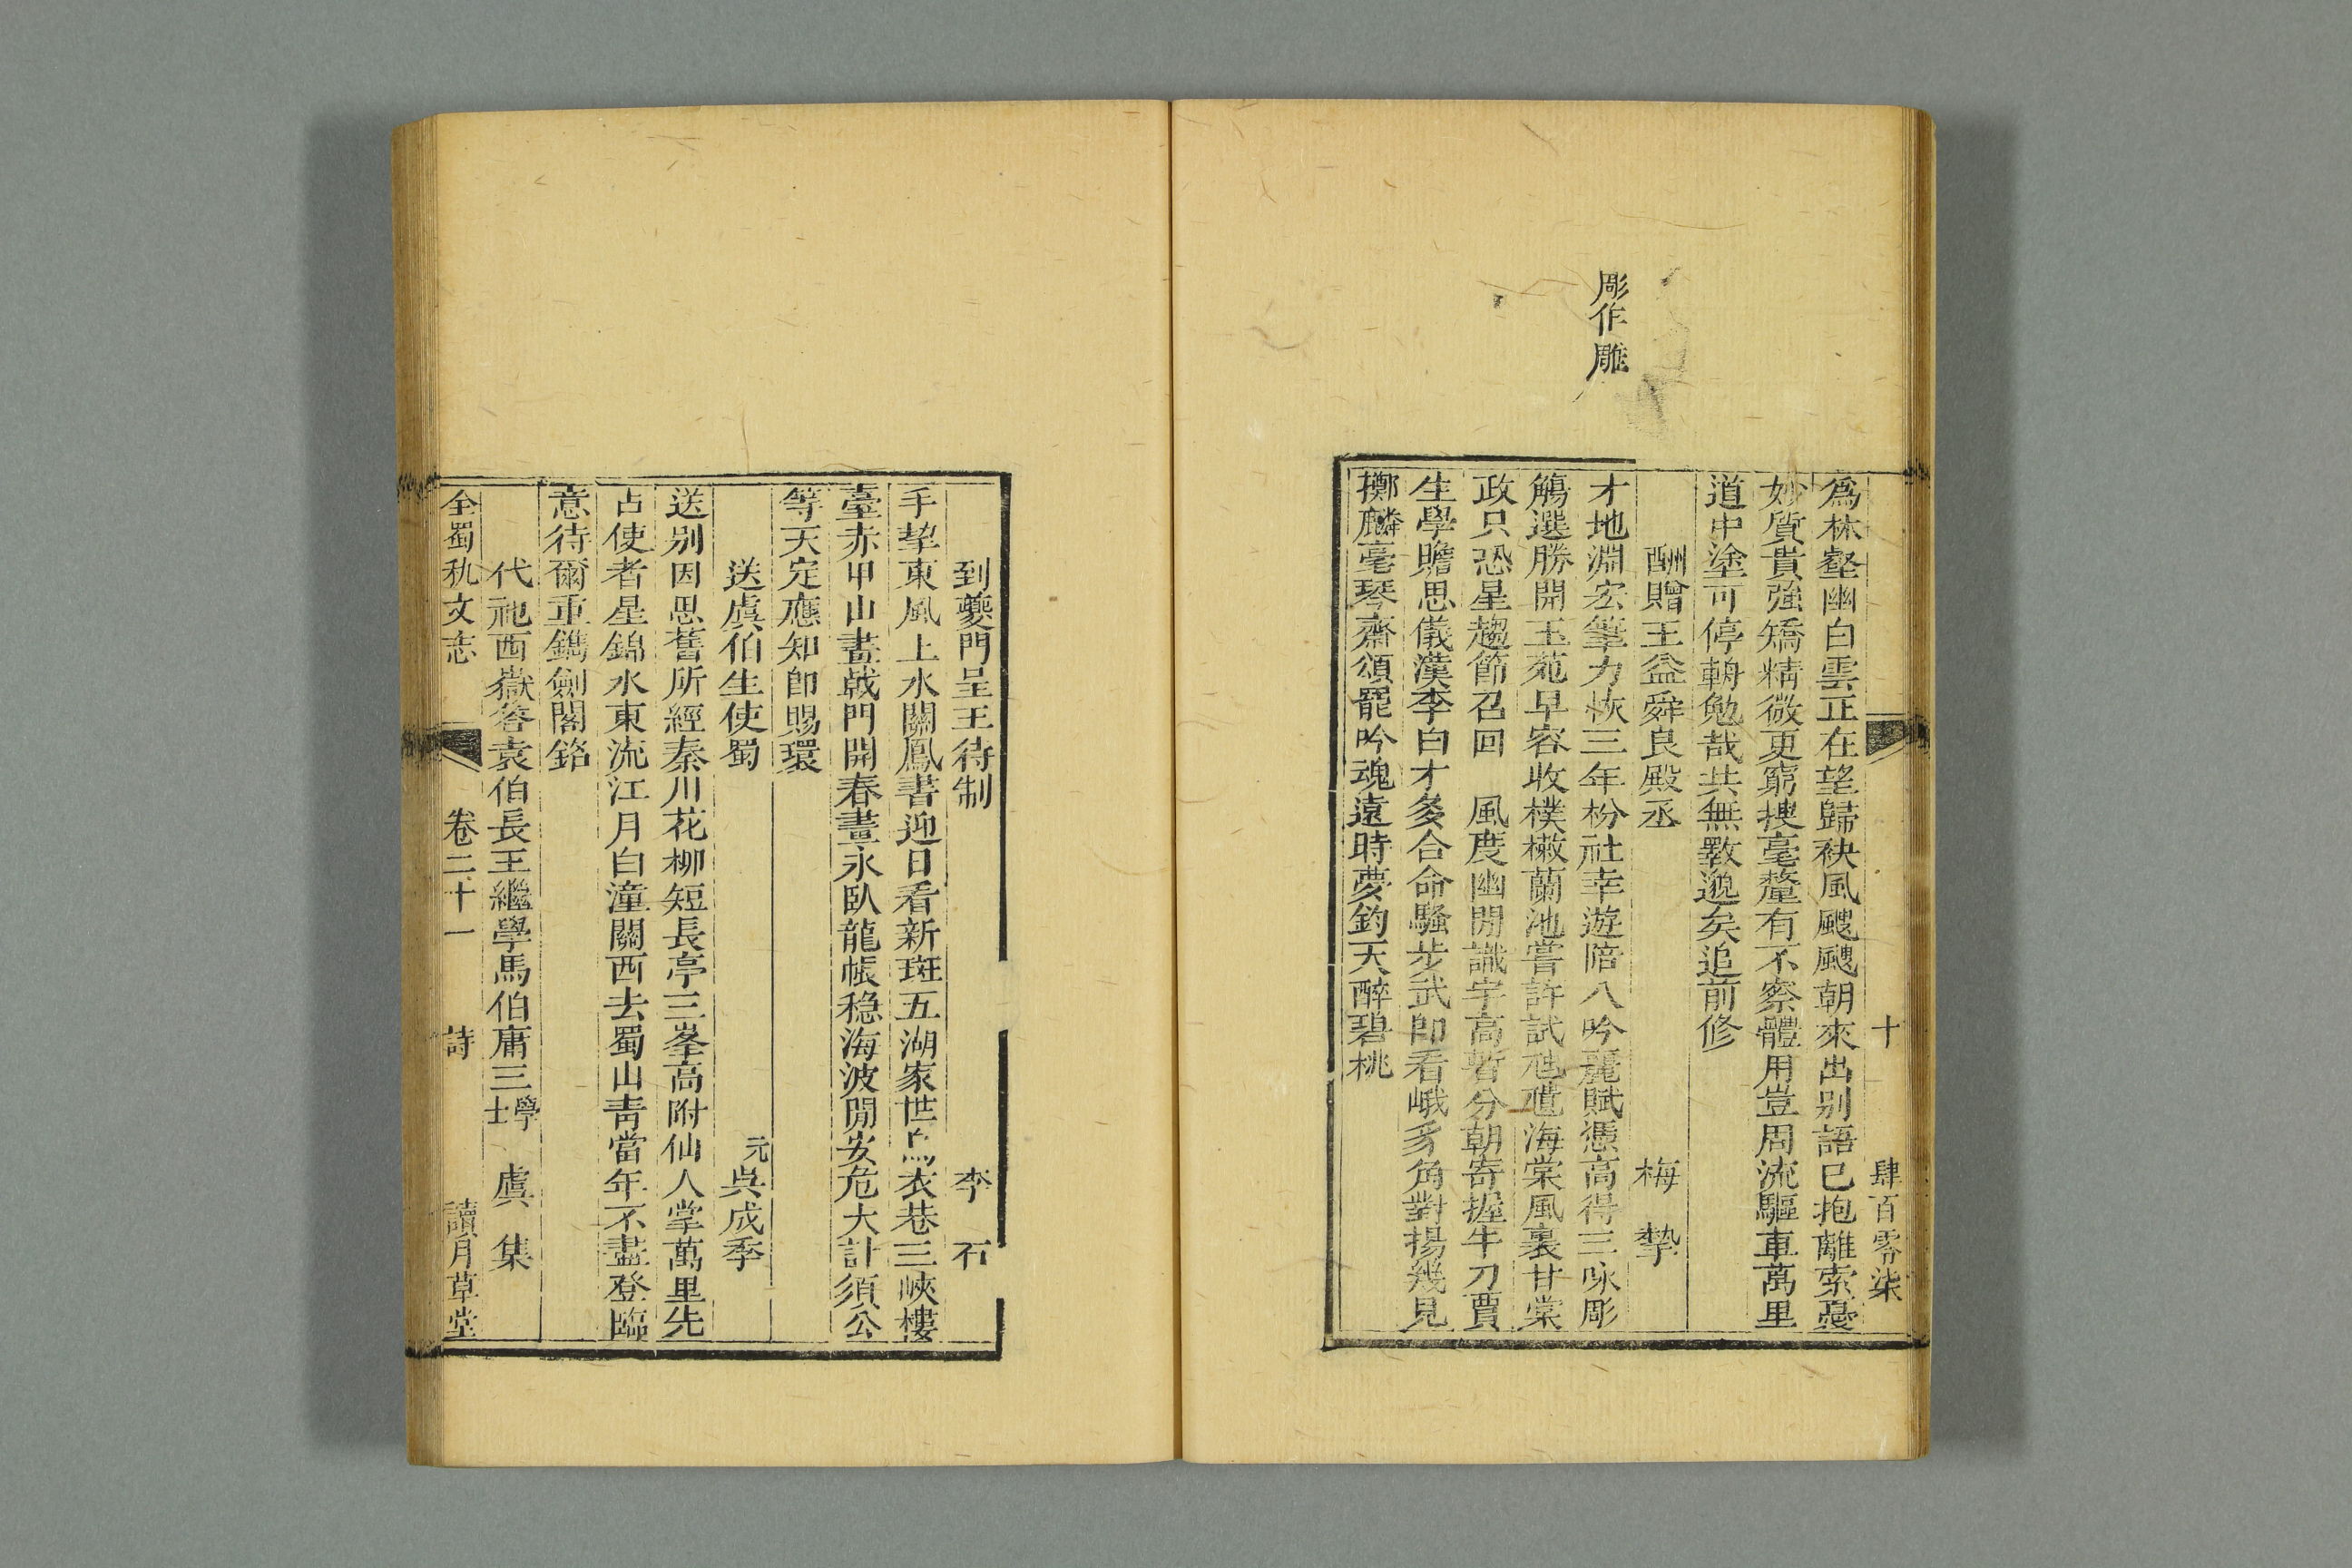 彫作雕
十 肆百零柒
為林壑幽白雲正在望歸袂風飂飂朝來出别語已抱離索憂
妙質貴強矯精微更窮搜毫釐有不察體用豈周流驅車萬里
道中塗可停輈勉哉共無斁邈矣追前修
酬贈王益舜良殿丞 梅摯
才地淵宏筆力恢三年枌社幸遊陪八吟麗賦憑高得三咏彫
觴選勝開玉苑早容收樸樕蘭池嘗許試尫𨼤海棠風裏甘棠
政只恐星趨節召回 風度幽閒識宇高暫分朝寄握牛刀賈
生學贍思儀漢李白才多合命騷步武卽看峨豸角對揚幾見
擲麟毫琴齋頌罷吟魂遠時夢鈞天醉碧桃
到夔門呈王待制 李石
手挈東風上水關鳳書迎日看新班五湖家世烏衣巷三峽樓
臺赤甲山畫戟門開春晝永臥龍帳穩海波閒安危大計須公
等天定應知卽賜環
送虞伯生使蜀 元吳成季
送别因思舊所經秦川花柳短長亭三峯高附仙人掌萬里先
占使者星錦水東流江月白潼關西去蜀山靑當年不盡登臨
意待爾重鐫劍閣銘
代祀西嶽答袁伯長王繼學馬伯庸三學士 虞集
全蜀秇文志 卷二十一 詩 讀月草堂